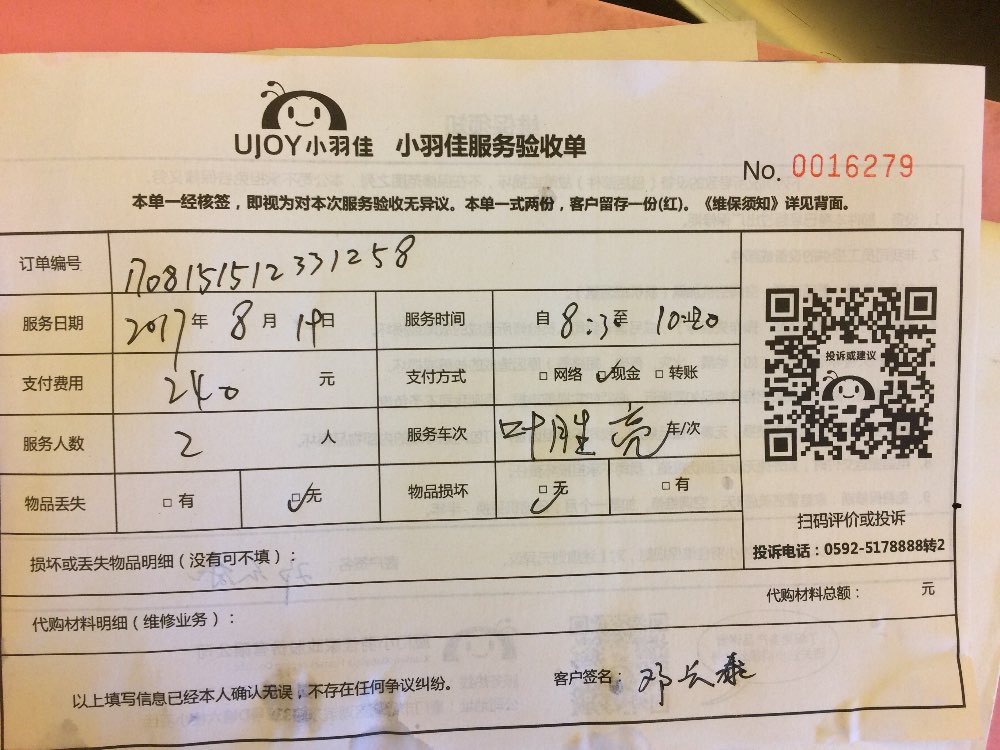 UJOY小羽佳 小羽佳服务验收单
No. 0016279
本单一经核签，即视为对本次服务验收无异议。本单一式两份，客户留存一份(红)。《维保须知》详见背面。
订单编号 1708151512331258
服务日期 2017年 8月 19日 服务时间 自 8:30至 10:20
支付费用 240 元 支付方式 □ 网络 □ 现金 □ 转账
投诉或建议
服务人数 2 人 服务车次 叶胜亮 车/次
物品丢失 □ 有 □ 无 物品损坏 □ 无 □ 有
扫码评价或投诉
投诉电话：0592-5178888转2
损坏或丢失物品明细（没有可不填）：
代购材料总额： 元
代购材料明细（维修业务）：
以上填写信息已经本人确认无误，不存在任何争议纠纷。
客户签名：邓